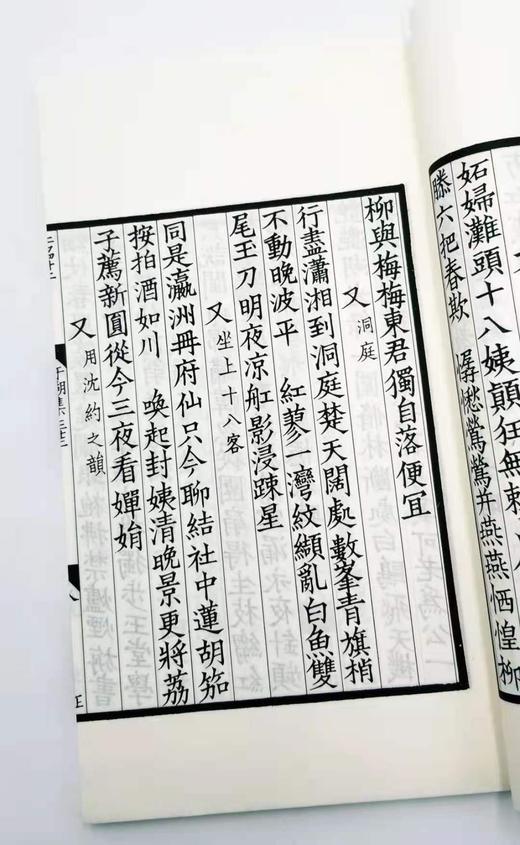 妬婦灘頭十八姨顛狂無
滕六把春欺　僝僽鶯鶯并燕燕恓惶柳
柳與梅梅東君獨自落便宜
又　洞庭
行盡瀟湘到洞庭楚天闊處數峯青旗梢
不動晚波平　紅蓼一灣紋纈亂白魚雙
尾玉刀明夜凉舡影浸踈星
又　坐上十八客
同是瀛洲冊府仙只今聊結社中蓮胡笳
按拍酒如川　喚起封姨清晚景更將荔
子薦新圓從今三夜看嬋娟
又　用沈約之韻